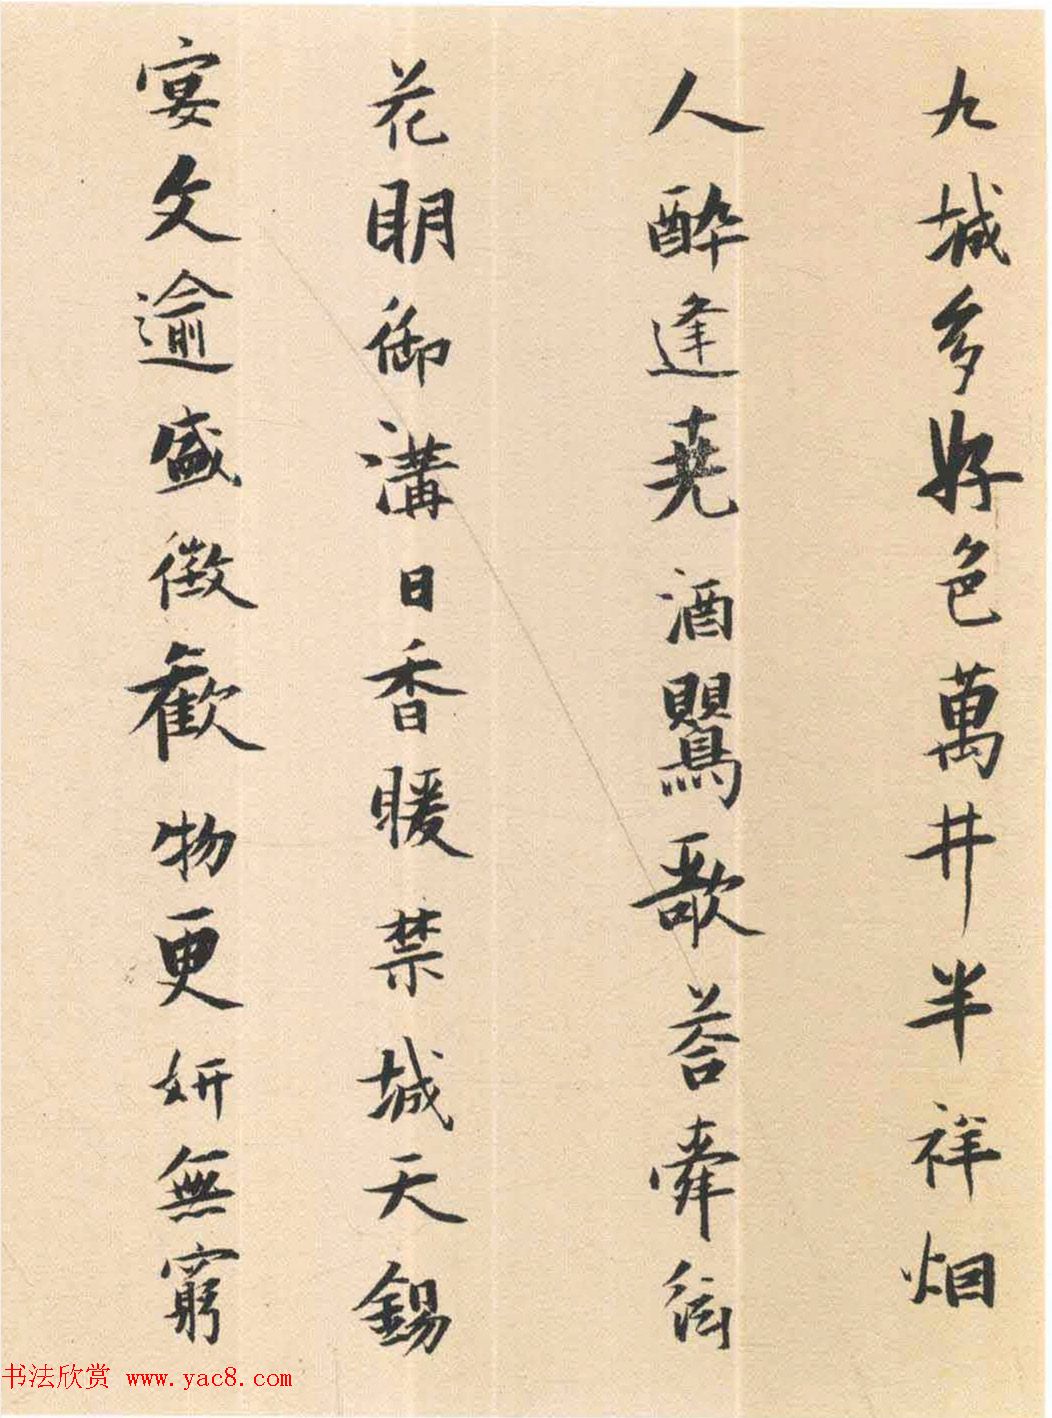 九城多好色萬井半祥烟
人醉逢堯酒鸎歌荅舜弦
花明御溝日香暖禁城天錫
宴文逾盛徴歡物更妍無窮
书法欣赏 www.yac8.com